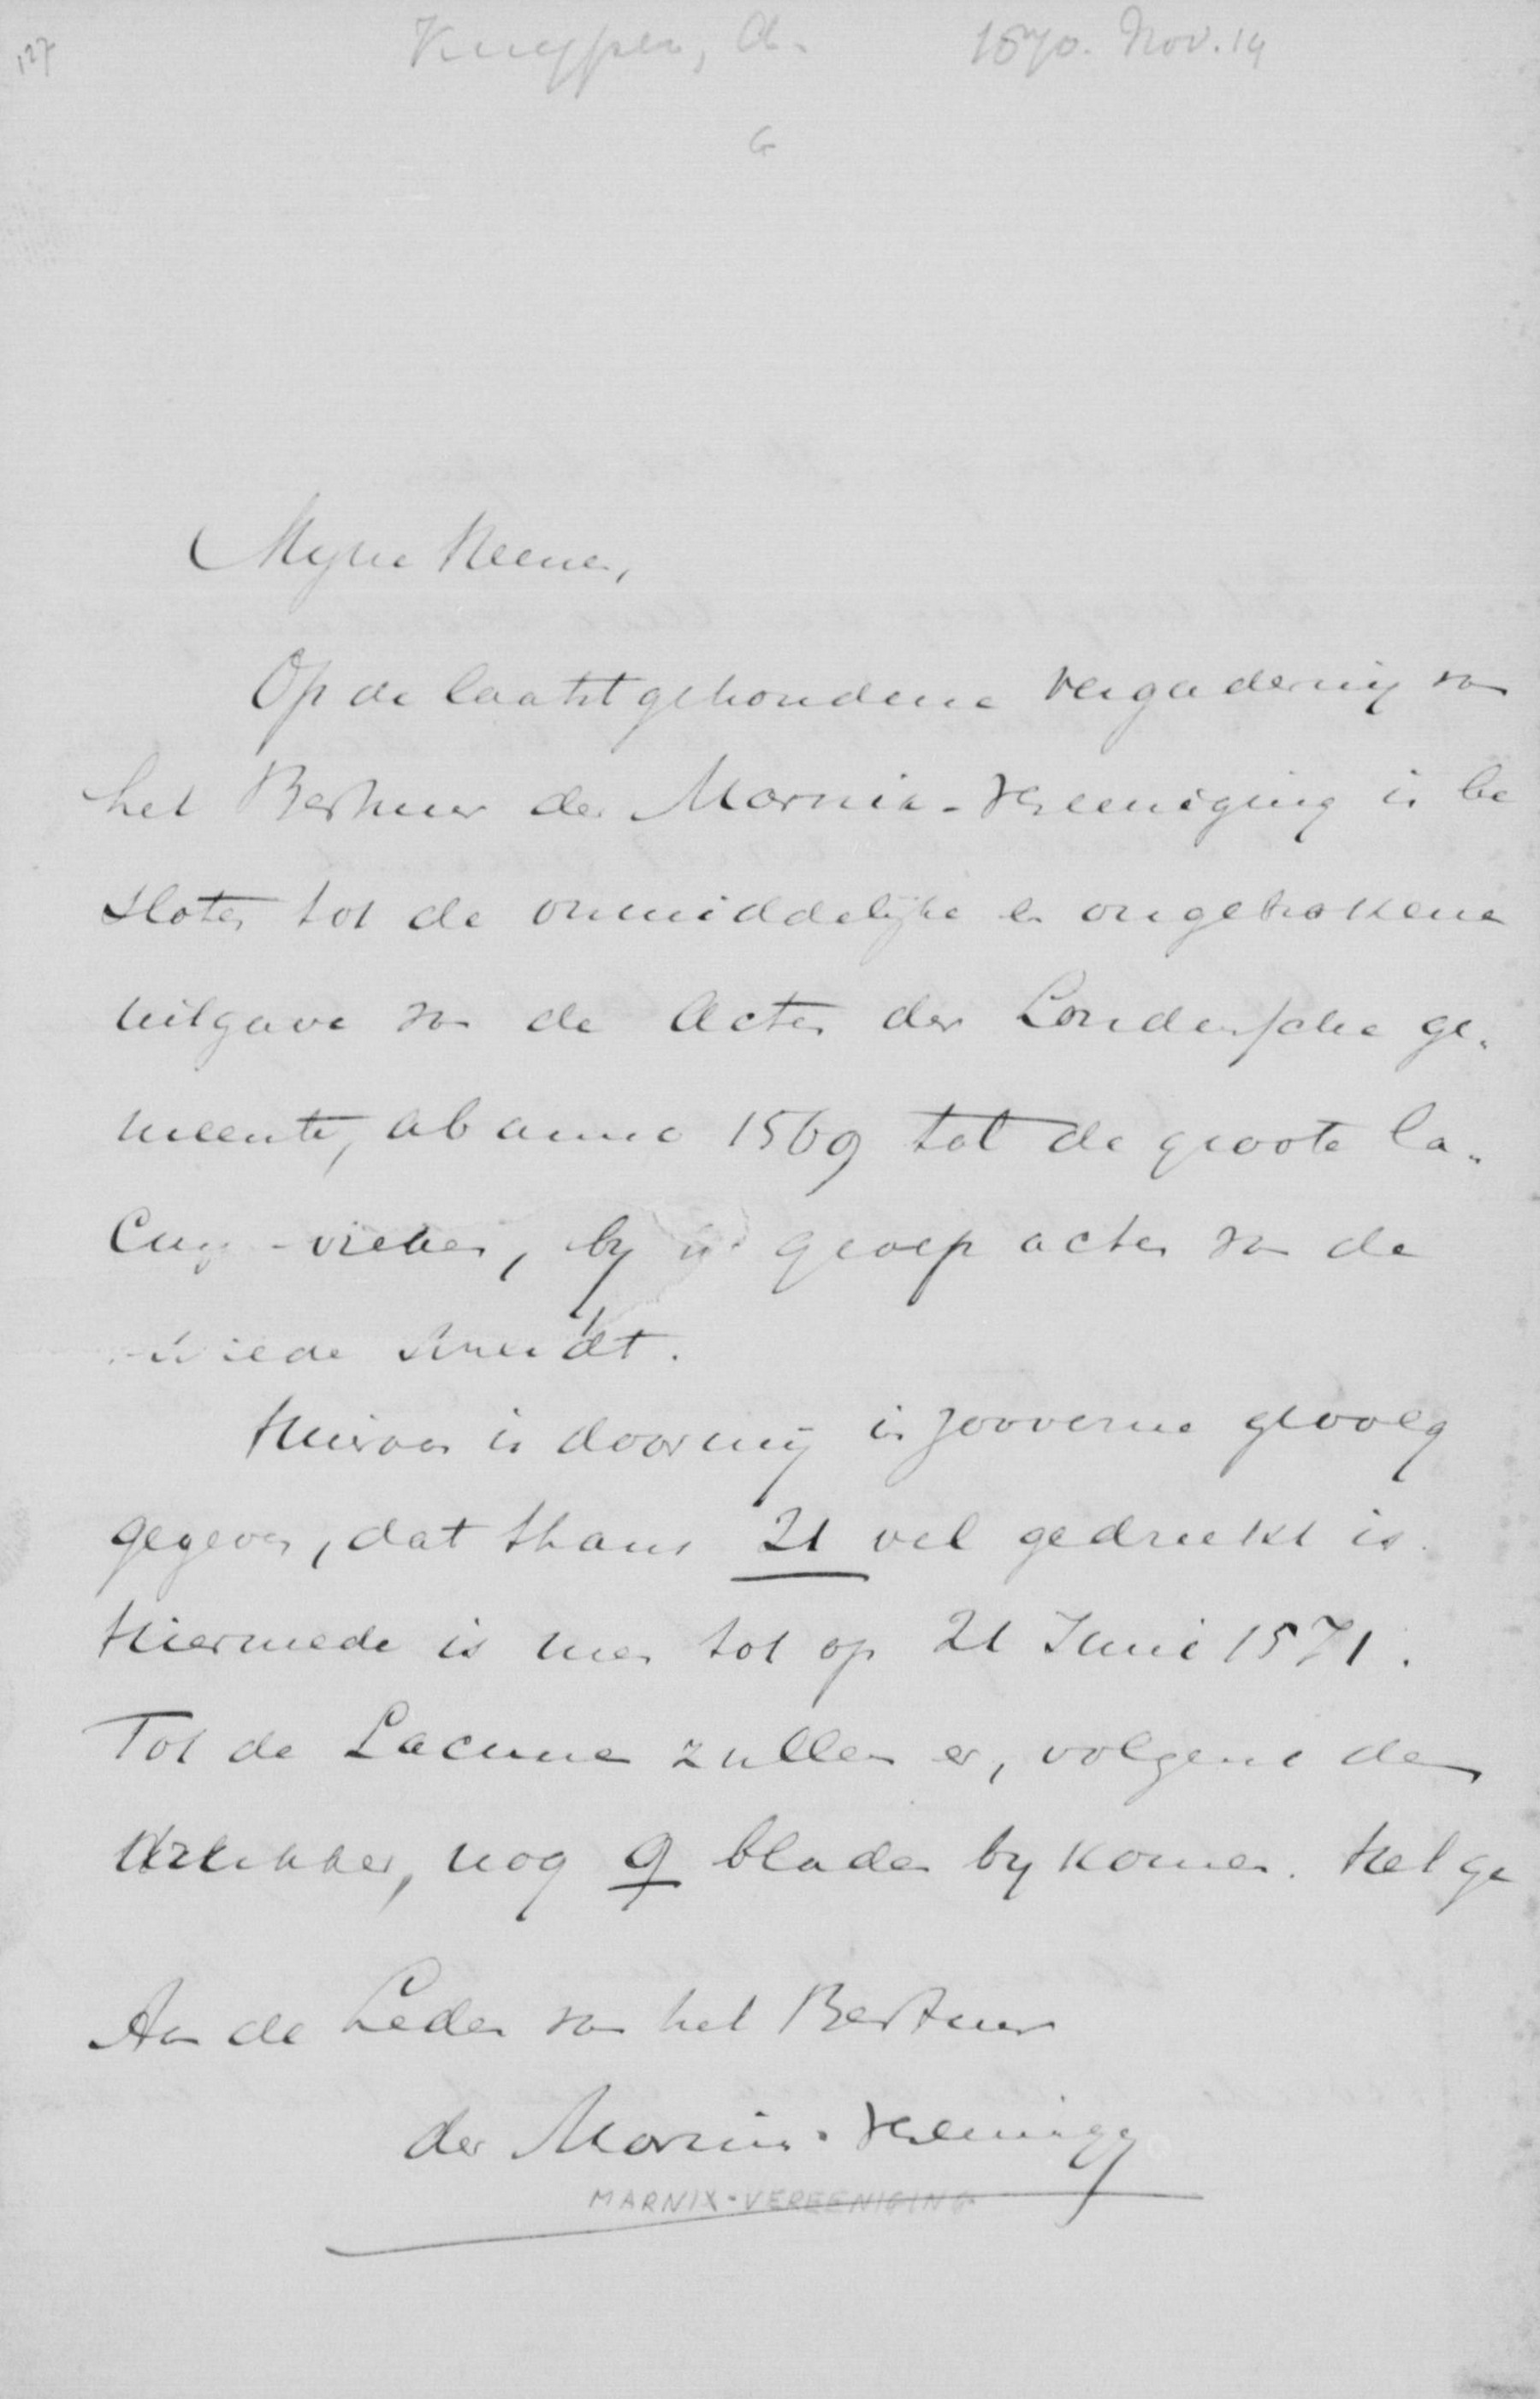 127
Kuyper, A. 1870. Nov. 14
G
Mijne Heeren,
Op de laatstgehoudene Vergadering van
het Bestuur der Marnix-Vereeniging is be
sloten tot de onmiddelijke en ongebrokene
uitgave van de Acten der Londensche ge-
meente, ab anno 1569 tot de groote la-
by groep acten van de
Hiervan is door mij in zooverre gevolg
gegeven, dat thans 21 vel gedrukt is.
Hiermede is men tot op 21 Juni 1571.
Tot de Lacune zullen er, volgens den
nog 9 bladen by komen. Het ge
Aan de Leden van het Bestuur
der Marnix-Vereeniging
MARNIX-VEREENIGING